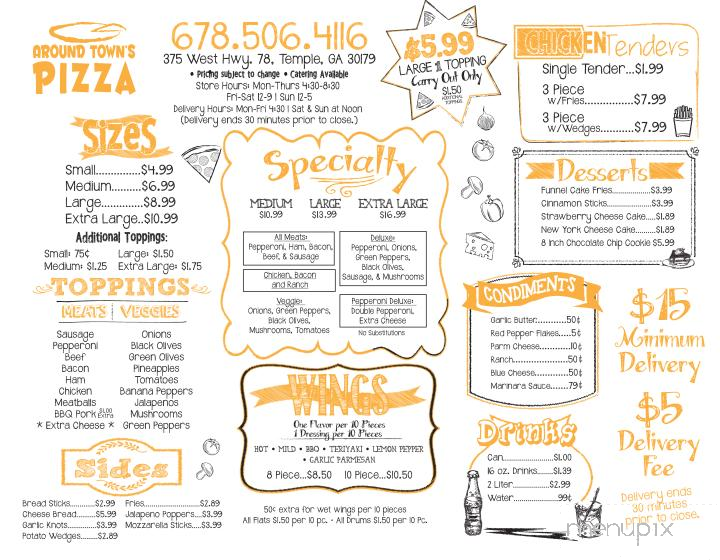 AROUND TOWN'S
PIZZA
678.506.4116
375 West Hwy. 78, Temple, GA 30179
• Pricing subject to change • Catering Available
Store Hours: Mon-Thurs 4:30-8:30
Fri-Sat 12-9 | Sun 12-5
Delivery Hours: Mon-Fri 4:30 | Sat & Sun at Noon
(Delivery ends 30 minutes prior to close.)
$5.99
LARGE 1 TOPPING
Carry Out Only
$1.50
ADDITIONAL
TOPPINGS
CHICKEN Tenders
Single Tender...$1.99
3 Piece
w/Fries............$7.99
3 Piece
w/Wedges.........$7.99
SIZES
Small..............$4.99
Medium.........$6.99
Large.............$8.99
Extra Large..$10.99
Additional Toppings:
Small: 75¢ Large: $1.50
Medium: $1.25 Extra Large: $1.75
TOPPINGS
MEATS VEGGIES
Sausage Onions
Pepperoni Black Olives
Beef Green Olives
Bacon Pineapples
Ham Tomatoes
Chicken Banana Peppers
Meatballs Jalapenos
BBQ Pork $1.00 Extra Mushrooms
* Extra Cheese * Green Peppers
Specialty
MEDIUM LARGE EXTRA LARGE
$10.99 $13.99 $16.99
All Meats:
Pepperoni, Ham, Bacon,
Beef, & Sausage
Chicken, Bacon
and Ranch
Veggie:
Onions, Green Peppers,
Black Olives,
Mushrooms, Tomatoes
Deluxe:
Pepperoni, Onions,
Green Peppers,
Black Olives,
Sausage, & Mushrooms
Pepperoni Deluxe:
Double Pepperoni,
Extra Cheese
No Substitutions
Desserts
Funnel Cake Fries...............$3.99
Cinnamon Sticks................$3.99
Strawberry Cheese Cake....$1.89
New York Cheese Cake......$1.89
8 Inch Chocolate Chip Cookie $5.99
CONDIMENTS
Garlic Butter............50¢
Red Pepper Flakes.....5¢
Parm Cheese............10¢
Ranch......................50¢
Blue Cheese.............50¢
Marinara Sauce........79¢
$15
Minimum
Delivery
$5
Delivery
Fee
Delivery ends
30 minutes
prior to close.
WINGS
One Flavor per 10 Pieces
1 Dressing per 10 Pieces
HOT • MILD • BBQ • TERIYAKI • LEMON PEPPER
• GARLIC PARMESAN
8 Piece...$8.50 10 Piece...$10.50
50¢ extra for wet wings per 10 pieces
All Flats $1.50 per 10 pc. • All Drums $1.50 per 10 pc.
Drinks
Can......................$1.00
16 oz. Drinks.......$1.39
2 Liter..................$2.99
Water....................99¢
Sides
Bread Sticks..........$2.99 Fries.......................$2.89
Cheese Bread.......$5.99 Jalapeno Poppers...$3.99
Garlic Knots..........$3.99 Mozzarella Sticks....$3.99
Potato Wedges......$2.89
menupix